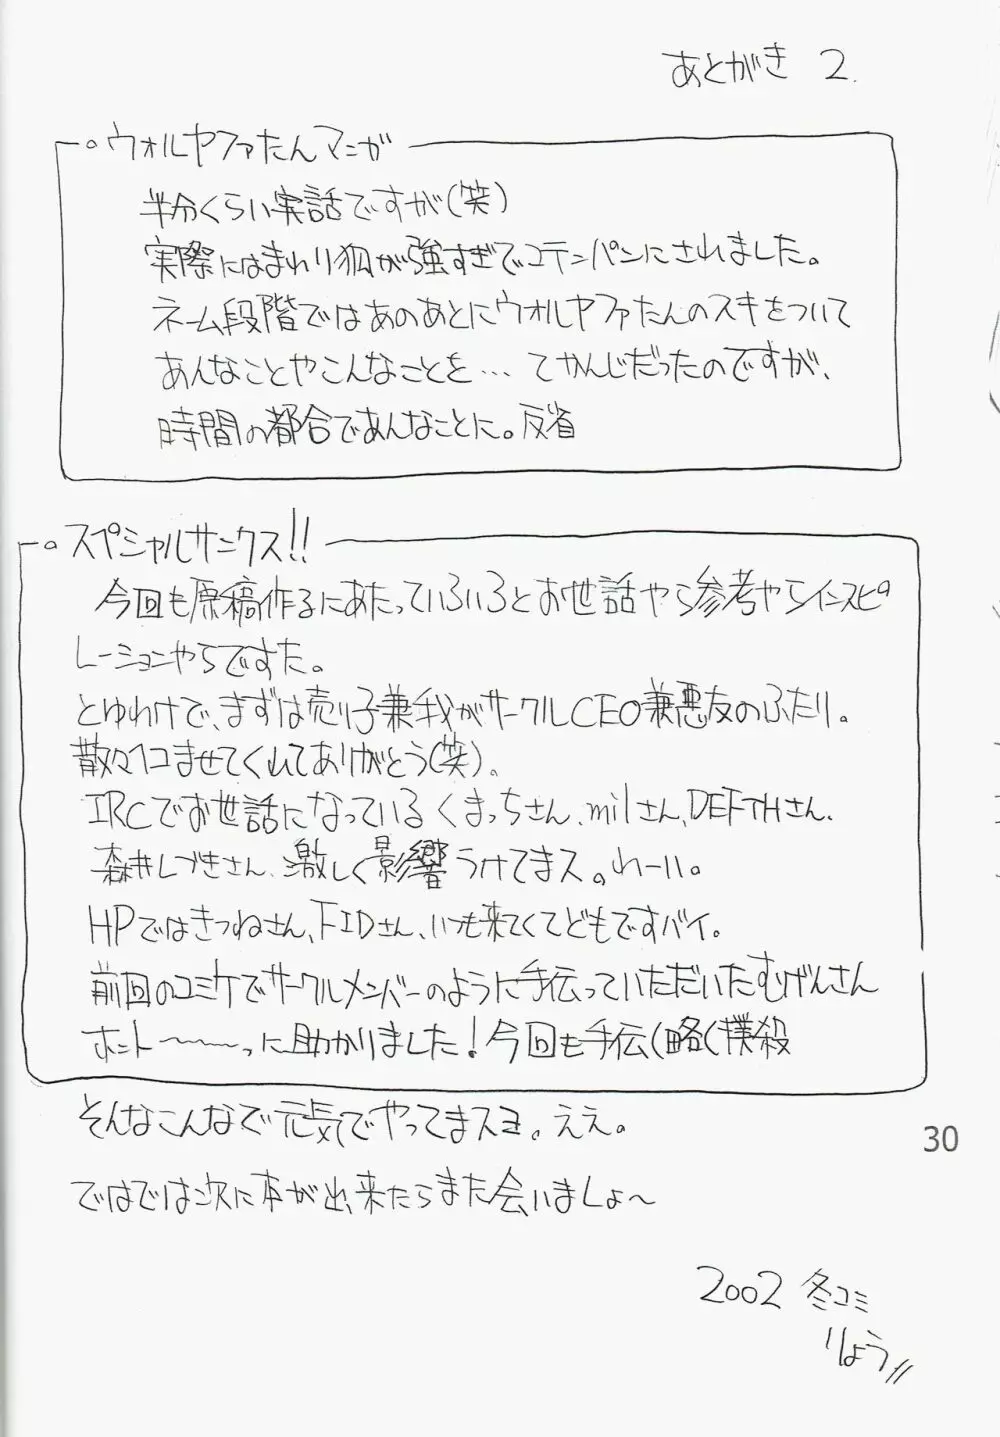 あとがき 2.
○ウォルヤファたんマンガ
半分くらい実話ですが(笑)
実際にはまわり狐が強すぎでコテンパンにされました。
ネーム段階ではあのあとにウォルヤファたんのスキをついて
あんなことやこんなことを… てかんじだったのですが、
時間の都合であんなことに。反省
○スペシャルサンクス!!
今回も原稿作るにあたっていろいろとお世話やら参考やらインスピ
レーションやらですた。
とゆわけで、まずは売り子兼我がサークルCEO兼悪友のふたり。
散々ヘコませてくれてありがとう(笑)。
IRCでお世話になっているくまっちさん、milさん、DEFTHさん、
森井しづきさん、激しく影響うけてまス。わーい。
HPではきつねさん、FIDさん、いつも来てくてどもですバイ。
前回のコミケでサークルメンバーのように手伝っていただいたむげんさん
ホント〜〜〜っに助かりました!今回も手伝(略(撲殺
そんなこんなで元気でやってまスヨ。ええ。
ではでは次に本が出来たらまた会いましょ〜
30
2002 冬コミ
りょう